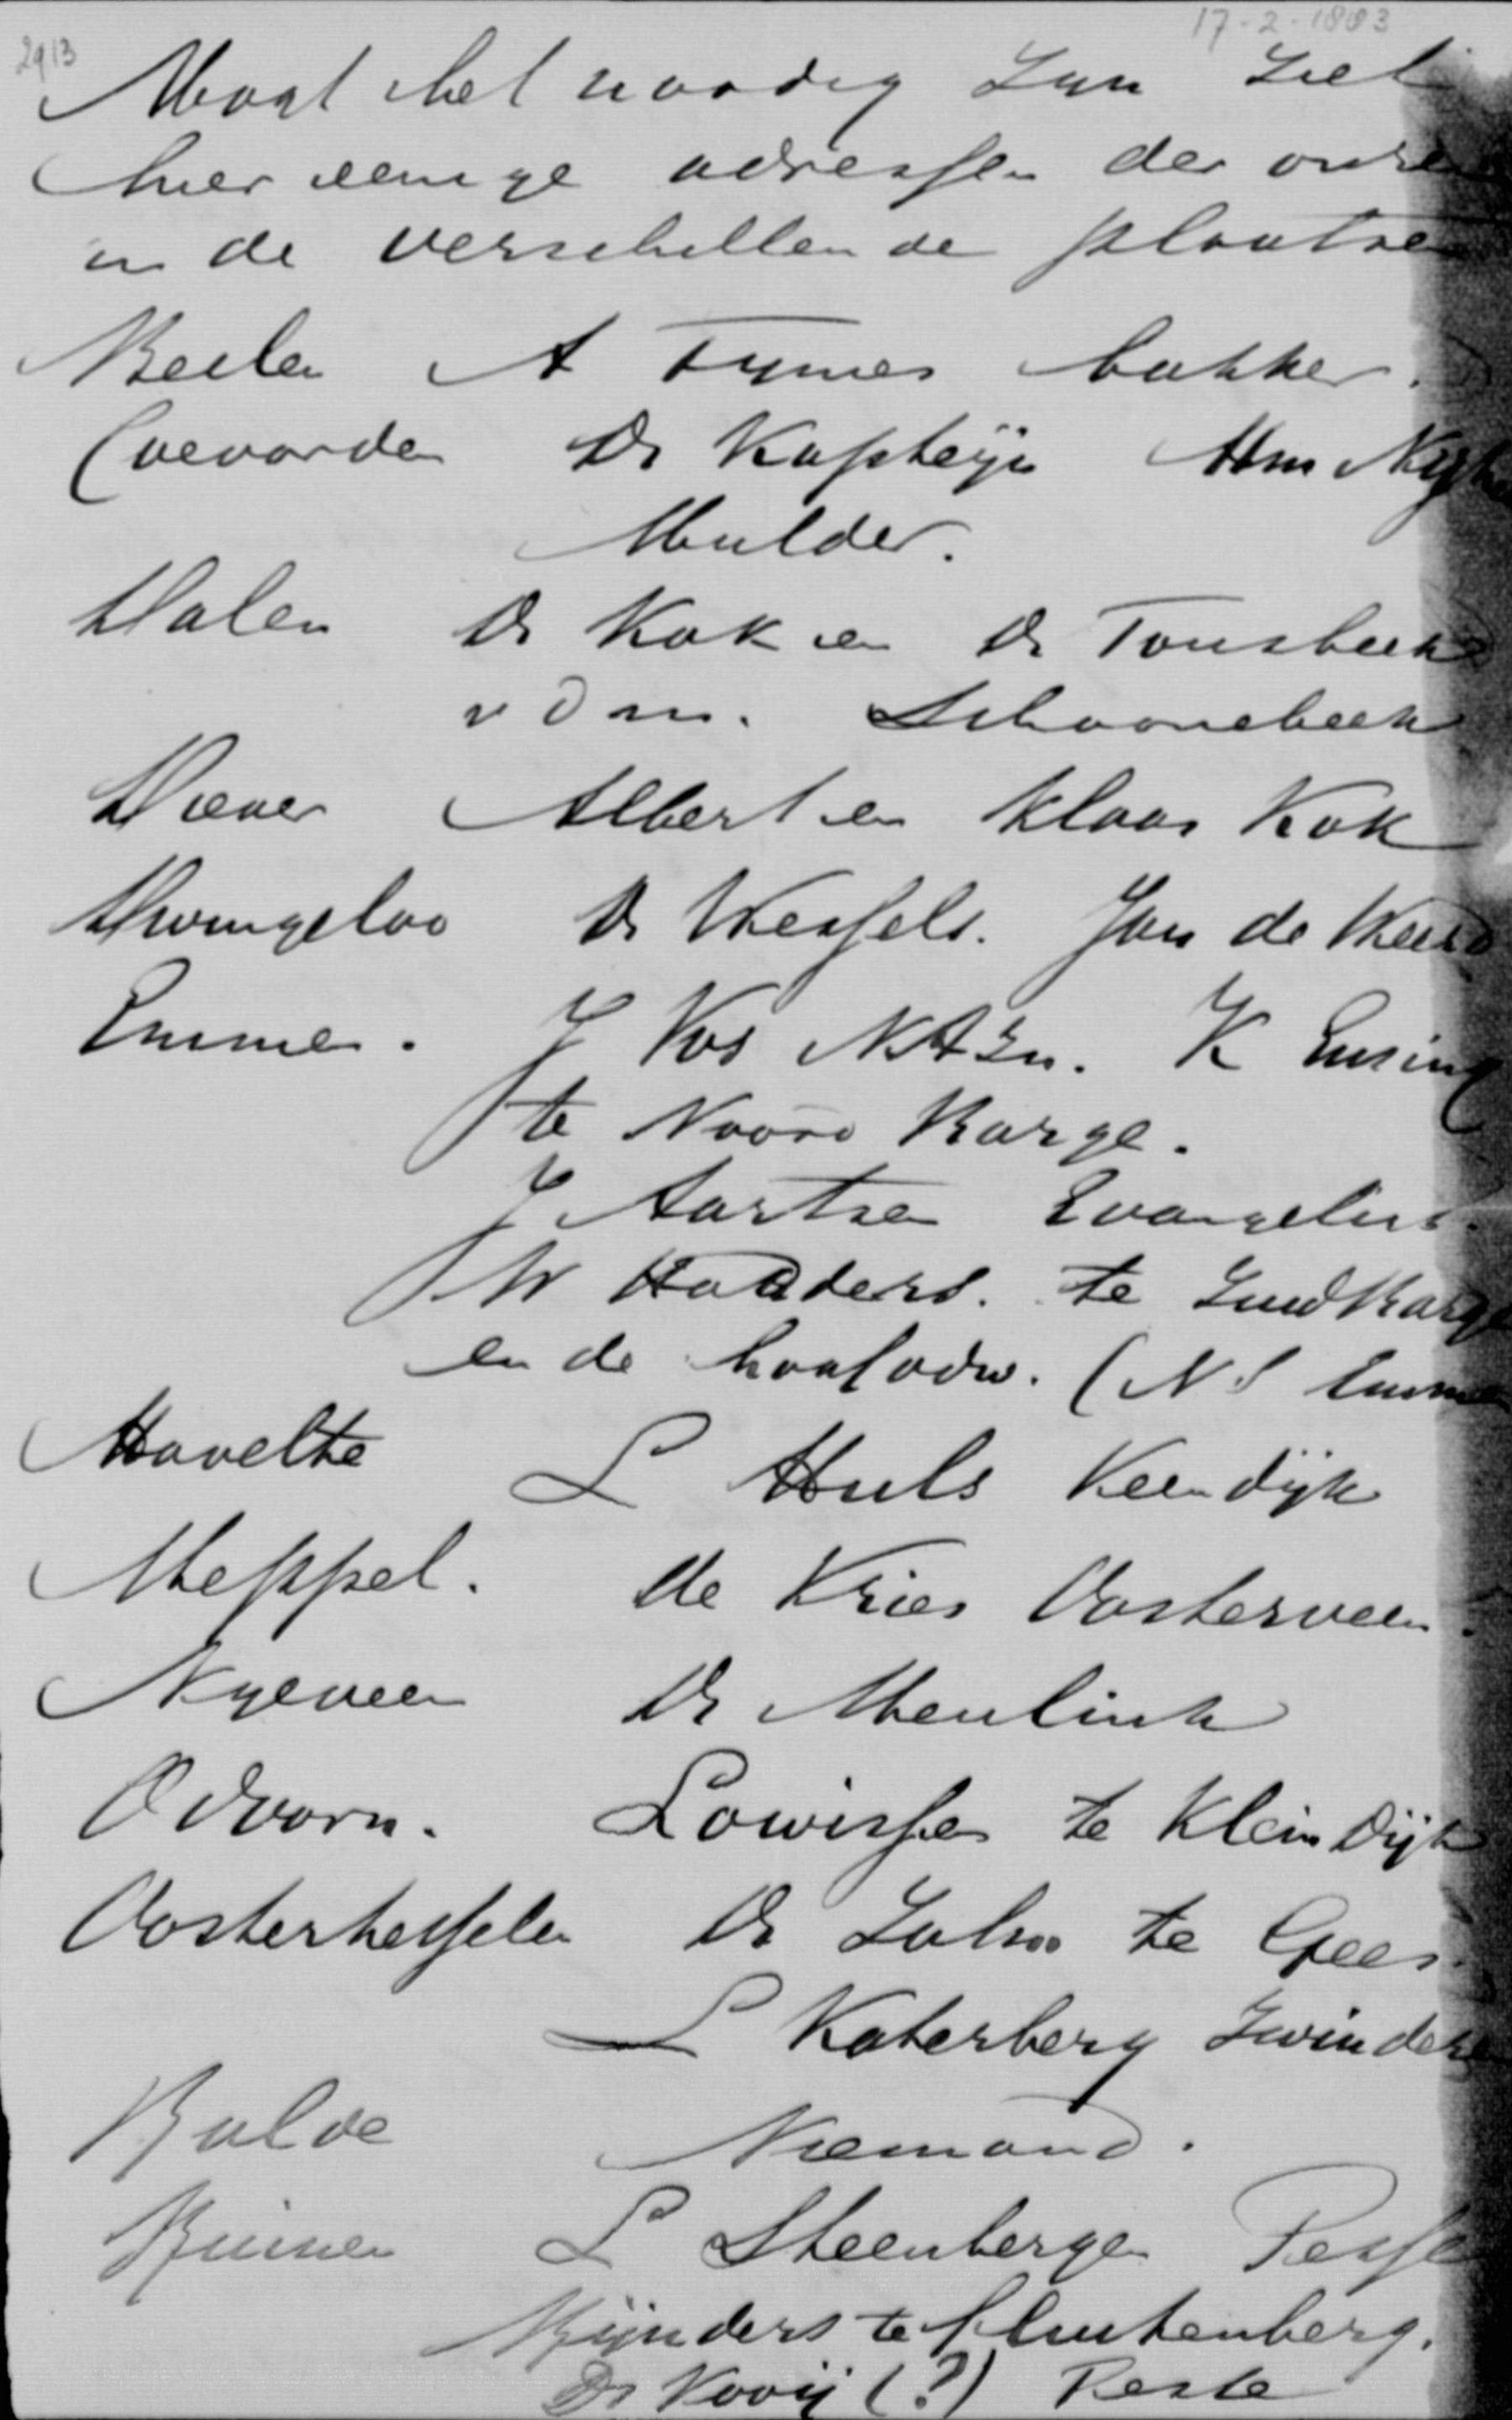 17-2-1883
2913
Mogt het noodig zyn ziet
hier eenige adressen der onze
in de verschillende plaatsen
Beilen A Tymes bakker.
Coevorden Ds Kapteijn Hm Nyh
Mulder.
Dalen Ds Kok en Ds Tonsbeek
v D m. Schoonebeek
Diever Albert en Klaas Kok
Dwingeloo Ds Wessels. Jan de Weerd
Emmen. J Vos NAzn. K Ensing
te Noord Barge.
J Aartsen Evangelist.
W Haaders. te Zuid Barge
en de hoofdodw. (N S Emmen
Havelte L Huls Veendijk
Meppel. de Vries Oosterveen.
Nyeveen Ds Meulink
Odoorn. Lowissen te Klein Dijk
Oosterhesselen Ds Zalsm te Gees.
L Katerberg Zwindere
Rolde Niemand.
Ruinen L Steenbergen Pesse
Rijnders te Fluitenberg.
Ds Kooij (?) Peste